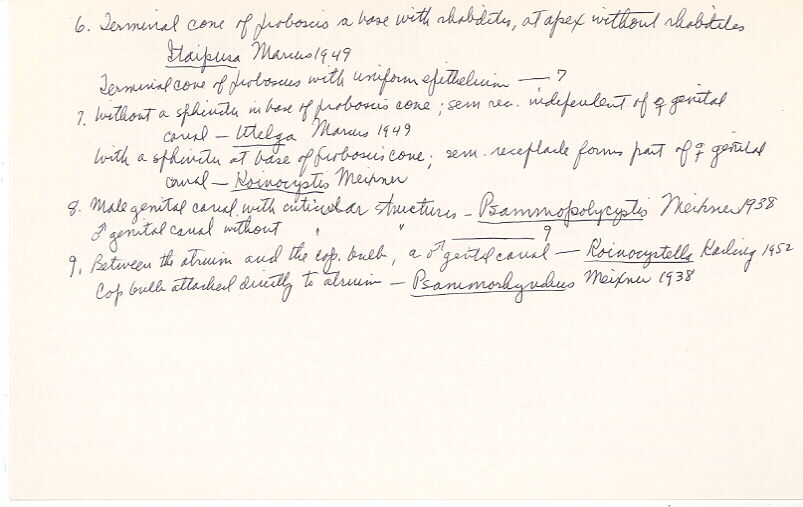 6. Terminal cone of proboscis a base with rhabdites, at apex without rhabdites
Itaipusa Marcus 1949
Terminal cone of proboscis with uniform epithelium — 7
7. Without a sphincter in base of proboscis cone; sem rec. independent of ♀ genital
canal — Utelga Marcus 1949
With a sphincter at base of proboscis cone; sem. receptacle forms part of ♀ genital
canal — Koinocystis Meixner
8. Male genital canal with cuticular structures — Psammopolycystis Meixner 1938
♂ genital canal without " " ——— 9
9. Between the atrium and the cop. bulb, a ♂ genital canal — Koinocystella Karling 1952
Cop bulb attached directly to atrium — Psammorhynchus Meixner 1938